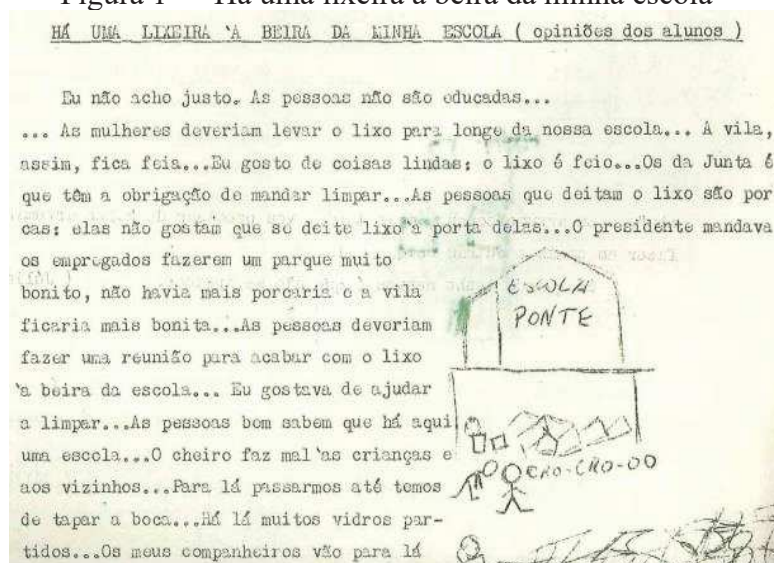 Figura 1 Há uma lixeira à beira da minha escola
HÁ UMA LIXEIRA 'A BEIRA DA MINHA ESCOLA ( opiniões dos alunos )
Eu não acho justo. As pessoas não são educadas...
... As mulheres deveriam levar o lixo para longe da nossa escola... A vila,
assim, fica feia...Eu gosto de coisas lindas: o lixo é feio...Os da Junta é
que têm a obrigação de mandar limpar...As pessoas que deitam o lixo são por
cas: elas não gostam que se deite lixo'a porta delas...O presidente mandava
os empregados fazerem um parque muito
bonito, não havia mais porcaria e a vila
ficaria mais bonita...As pessoas deveriam
fazer uma reunião para acabar com o lixo
'a beira da escola... Eu gostava de ajudar
a limpar...As pessoas bem sabem que há aqui
uma escola...O cheiro faz mal'as crianças e
aos vizinhos...Para lá passarmos até temos
de tapar a boca...Há lá muitos vidros par-
tidos...Os meus companheiros vão para lá
ESCOLA
PONTE
CRO-CRO-